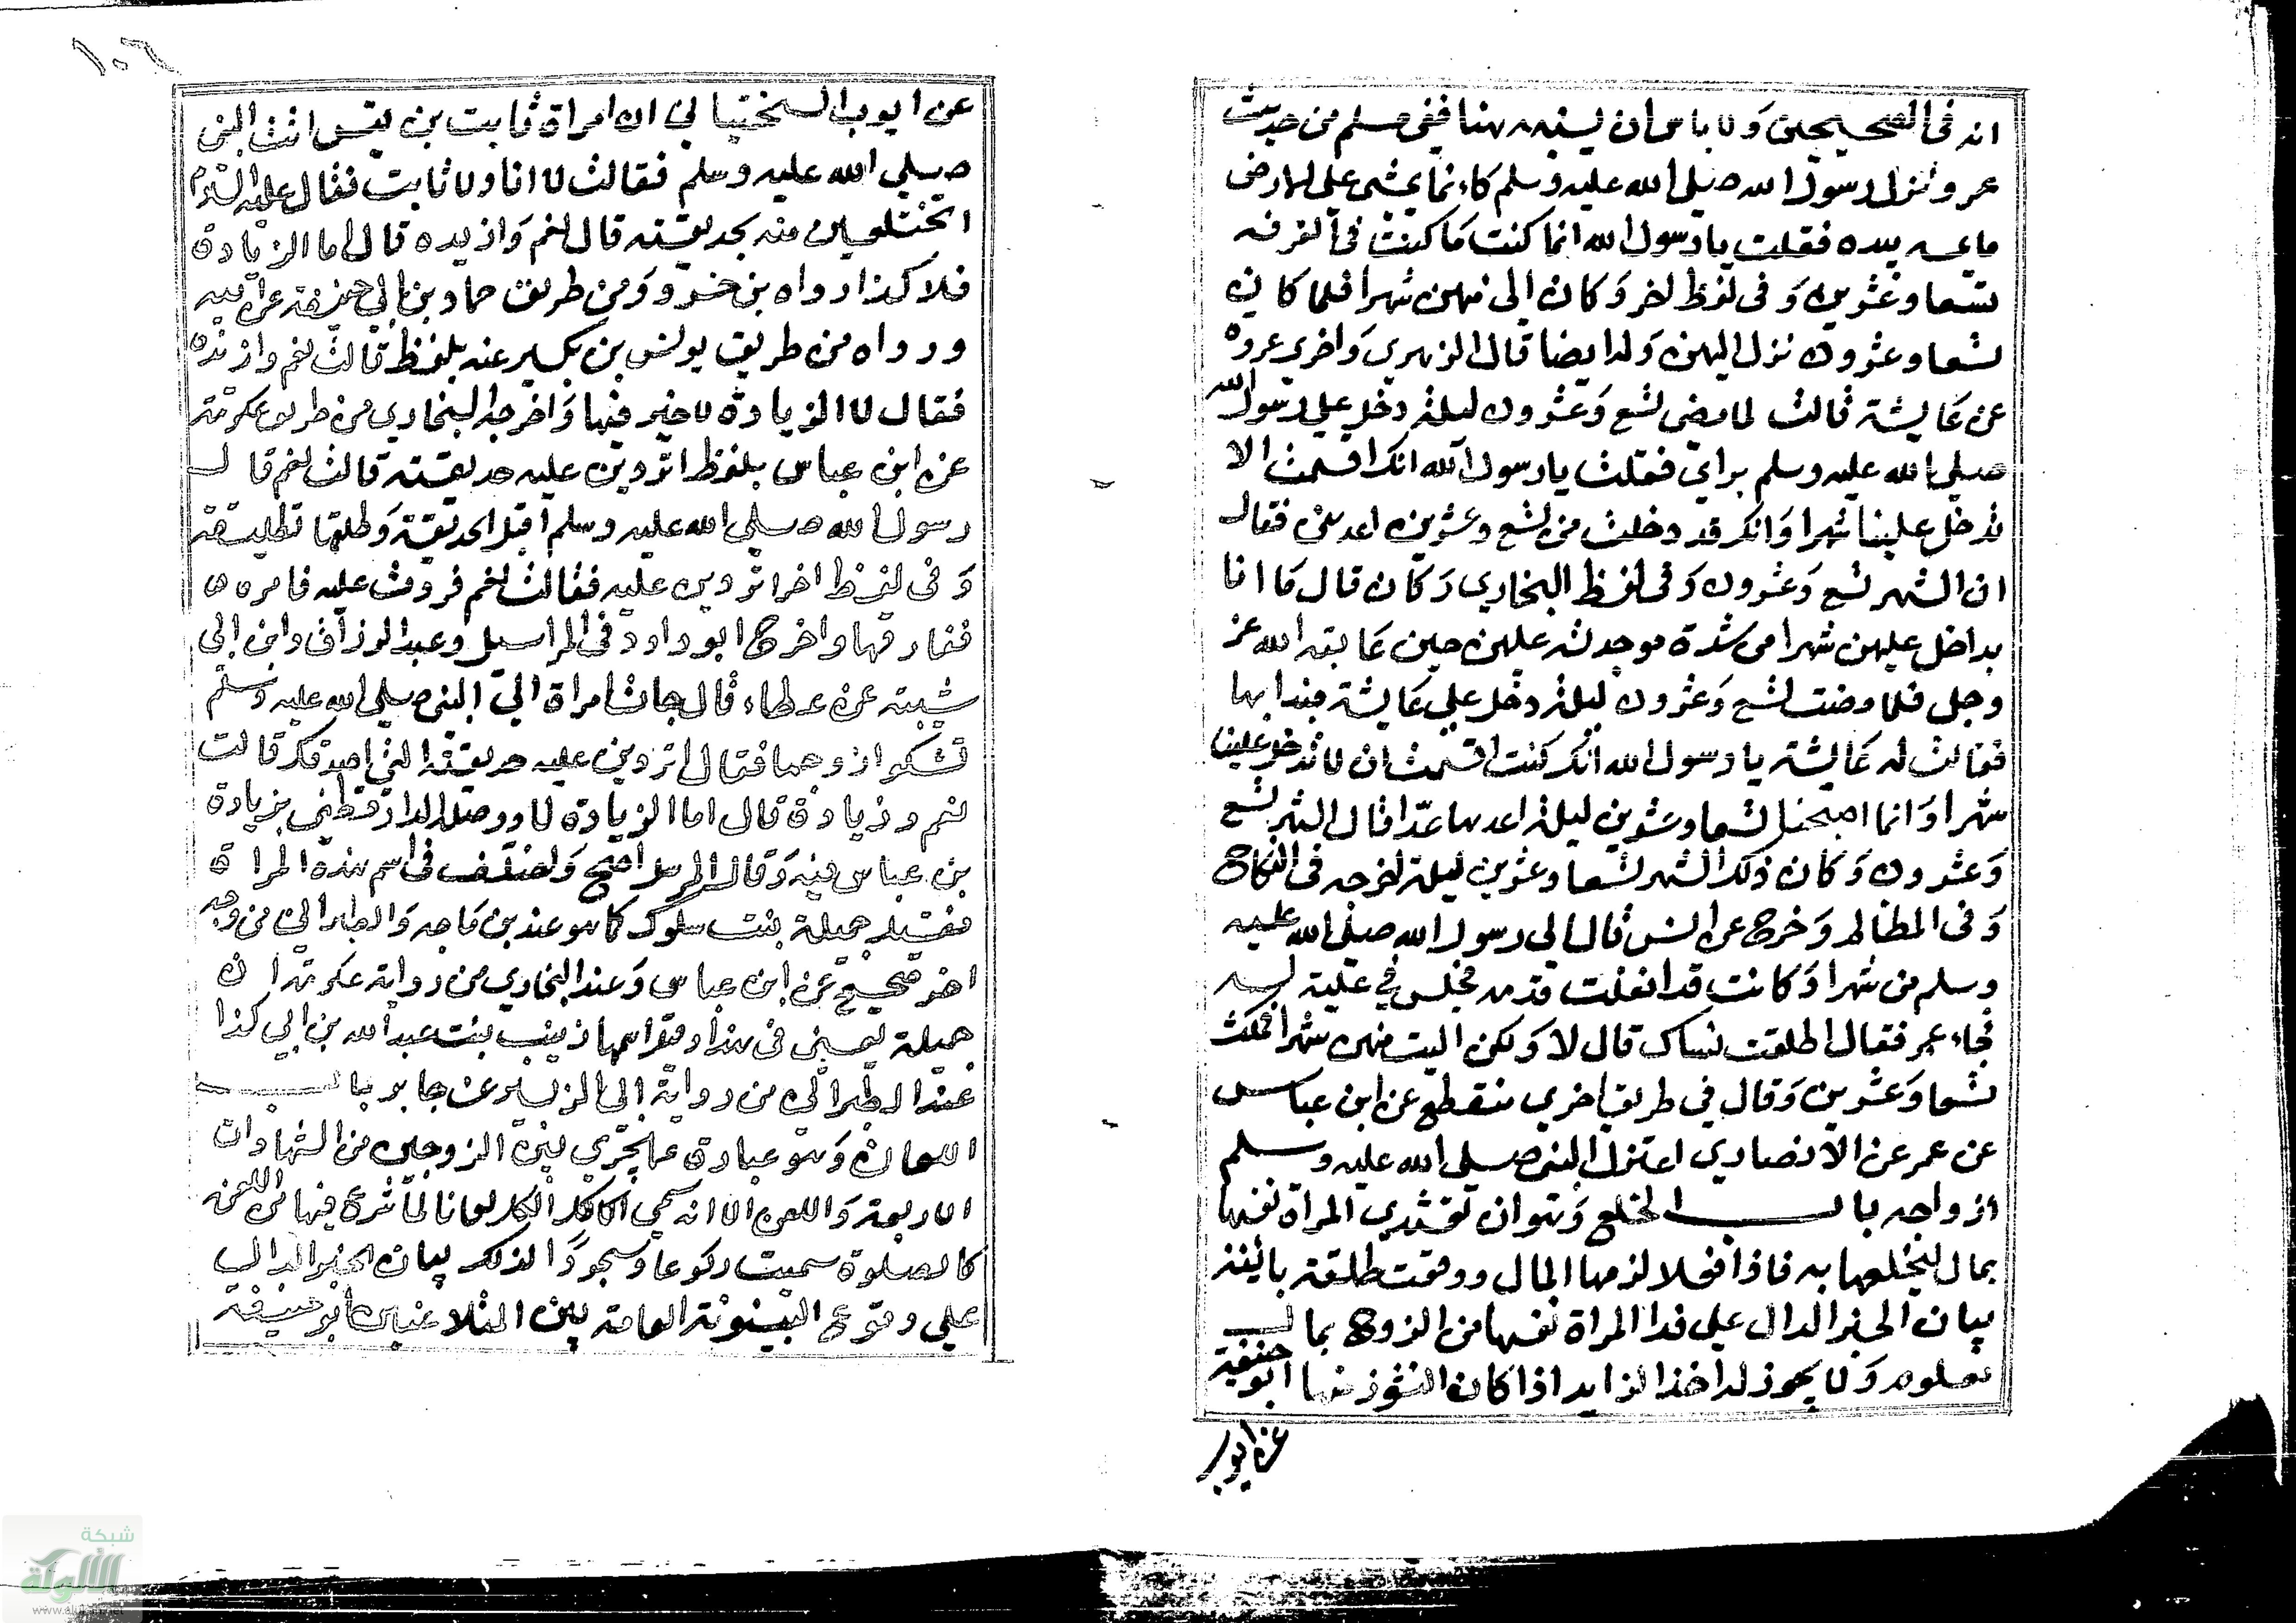 انه في الصحيحين ولا باس ان ننبه هنا ففي مسلم من حديث
عمر ونزل رسول الله صلى الله عليه وسلم كانما يمشي على الارض
ما يمسه بيده فقلت يا رسول الله انما كنت في الغرفه
تسعا وعشرين وفي لفظ اخر وكان الى منهن شهرا فلما كان
تسعا وعشرون نزل اليهن وله ايضا قال الزهري واخبرني عروه
عن عايشة قالت لما مضى تسع وعشرون ليلة دخل علي رسول الله
صلى الله عليه وسلم بداي فقلت يا رسول الله انك اقسمت الا
تدخل علينا شهرا وانك قد دخلت من تسع وعشرين اعدهن فقال
ان الشهر تسع وعشرون وفي لفظ البخاري وكان قال ما انا
بداخل عليهن شهرا من شدة موجدته عليهن حين عاتبه الله عز
وجل فلما مضت تسع وعشرون ليلة دخل على عايشة فبدا بها
فقالت له عايشة يا رسول الله انك كنت اقسمت ان لا تدخل علينا
شهرا وانما اصبحنا تسعا وعشرين ليلة اعدها عدا قال الشهر تسع
وعشرون وكان ذلك الشهر تسعا وعشرين ليلة اخرجه في النكاح
وفي المظالم وخرج عن انس قال الى رسول الله صلى الله عليه
وسلم من شهرا وكانت قد انفكت قدمه فجلس في علية له
فجاء عمر فقال اطلقت نساك قال لا ولكن اليت منهن شهرا فمكث
تسعا وعشرين وقال في طريق اخرى منقطع عن ابن عباس
عن عمر عن الانصاري اعتزل النبي صلى الله عليه وسلم
ازواجه باب الخلع وهو ان تفتدي المراة نفسها
بمال ليخلعها به فاذا فعلا لزمها المال ووقعت طلقة باينة
بيان الخبر الدال على فدا المراة نفسها من الزوج بمال
معلوم ولا يجوز له اخذ الزايد اذا كان النشوز منها ابو حنيفة
عن ايوب
١٠٦
عن ايوب السختياني ان امراة ثابت بن قيس اتت النبي
صلى الله عليه وسلم فقالت لا انا ولا ثابت فقال عليه السلام
اتختلعين منه بحديقته قال نعم وازيده قال اما الزيادة
فلا كذا رواه بن خسرو ومن طريق حماد بن ابي حنيفة عن ابيه
ورواه من طريق يونس بن بكير عنه بلفظ قالت نعم وازيده
فقال لا الزيادة لا خير فيها واخرجه البخاري من طريق عكرمة
عن ابن عباس بلفظ اتردين عليه حديقته قالت نعم قال
رسول الله صلى الله عليه وسلم اقبل الحديقة وطلقها تطليقة
وفي لفظ اخر اتردين عليه فقالت نعم فردت عليه فامره
ففارقها واخرج ابو داود في المراسيل وعبد الرزاق وابن ابي
شيبة عن عطاء قال جات امراة الى النبي صلى الله عليه وسلم
تشكو زوجها فقال اتردين عليه حديقته التي اصدقك قالت
نعم وزيادة قال اما الزيادة لا ووصله الدارقطني بزيادة
بن عباس فيه وقال المرسل اصح واختلف في اسم هذه المراة
فقيل جميلة بنت سلول كما هو عند بن ماجه والطبراني من وجه
اخر صحيح عن ابن عباس وعند البخاري من رواية عكرمة ان
جميلة يعني في هذا وقع اسمها زينب بنت عبد الله بن ابي كذا
عند الطبراني من رواية ابي الزبير عن جابر باب
اللعان وهو عبارة عما يجري بين الزوجين من الشهادات
الاربعة واللعن الا انه سمي الكل لعانا لما شرع فيها من اللعن
كالصلوة سميت ركوعا وسجودا لذلك بيان الخبر الدال
على وقوع البينونة العامة بين المتلاعنين ابو حنيفة
شبكة
الألوكة
www.alukah.net